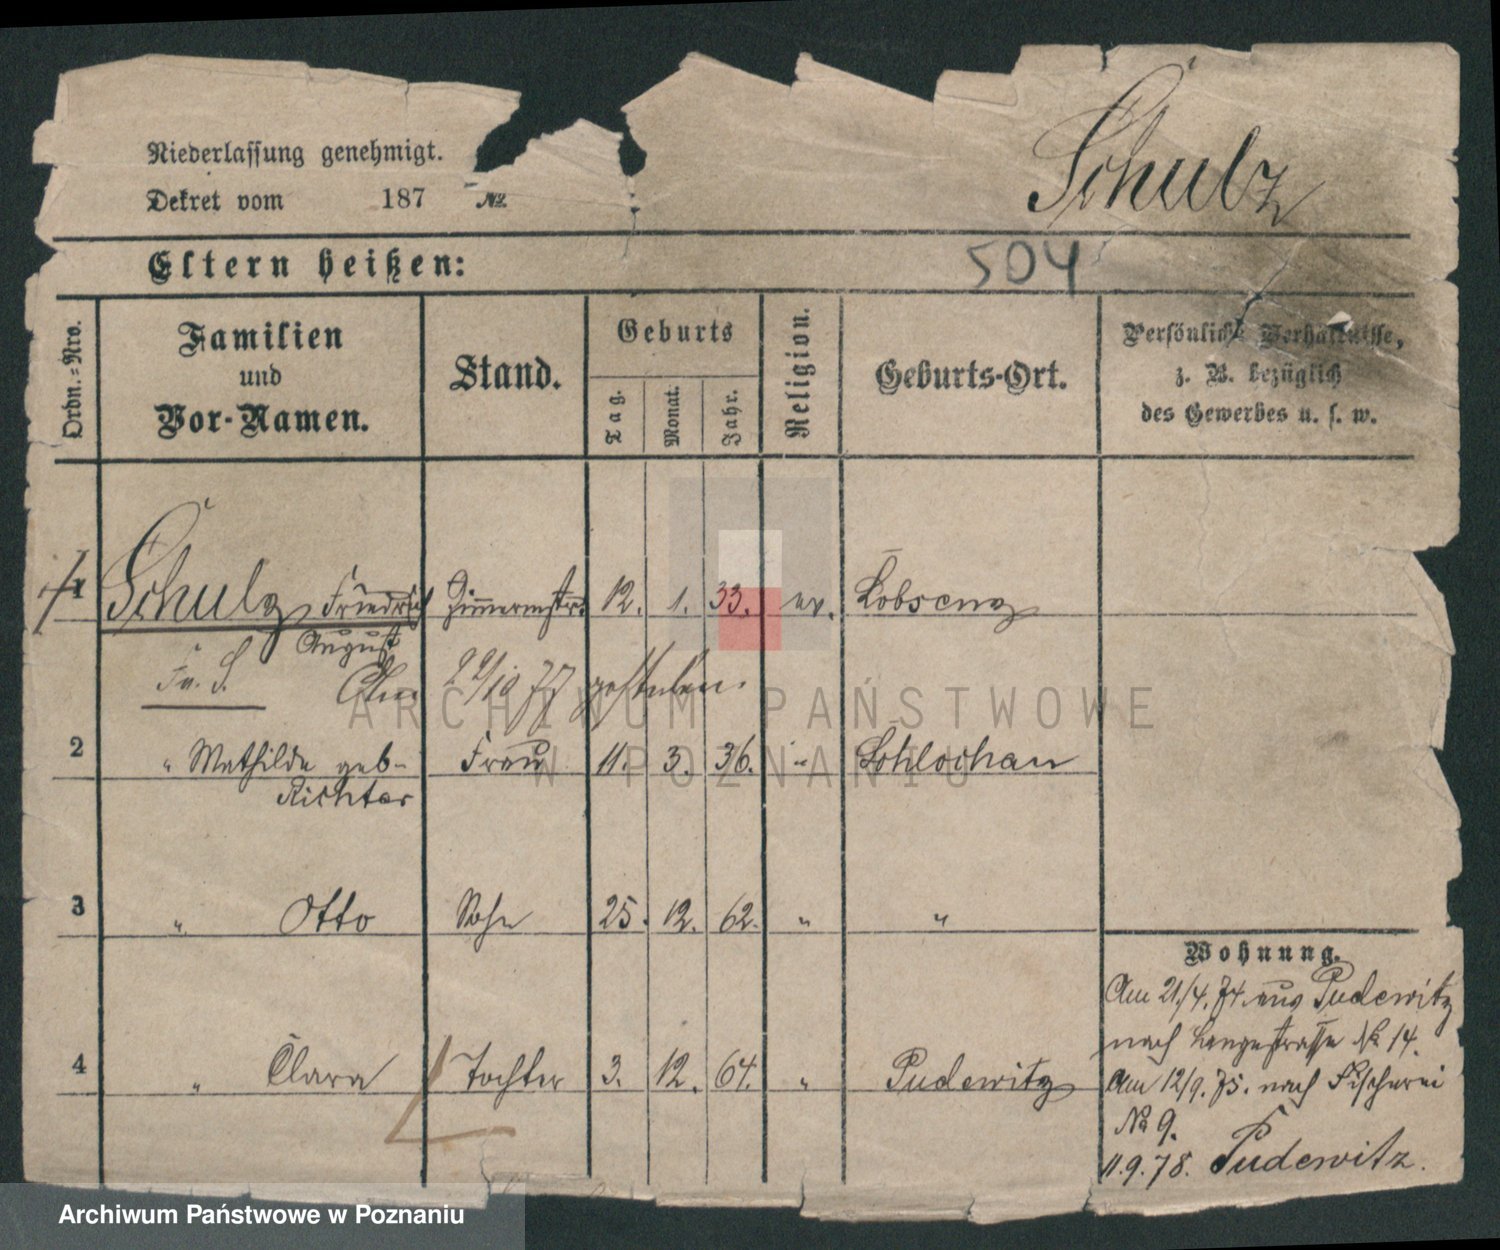 Niederlassung genehmigt.
Dekret vom 187 №
Schulz
Eltern heißen:
504
Ordn.=Nro.
Familien
und
Vor-Namen.
Stand.
Geburts
Tag.
Monat.
Jahr.
Religion.
Geburts-Ort.
Persönliche Verhältnisse,
z. B. bezüglich
des Gewerbes u. s. w.
1 Schulz Friedrich Zimmermstr. 12. 1. 33. ev. Lobsenz
August
Fr. S. Am 22/10 77 gestorben.
2 " Mathilde geb. Frau 11. 3. 36. " Schlochau
Richter
3 " Otto Sohn 25. 12. 62. " "
4 " Clara Tochter 3. 12. 64. " Pudewitz
Wohnung.
Am 21/4. 74. aus Pudewitz
nach Langestrasse № 14.
Am 12/9. 75. nach Fischerei
№ 9.
11.9.78. Pudewitz.
ARCHIWUM PAŃSTWOWE
W POZNANIU
Archiwum Państwowe w Poznaniu